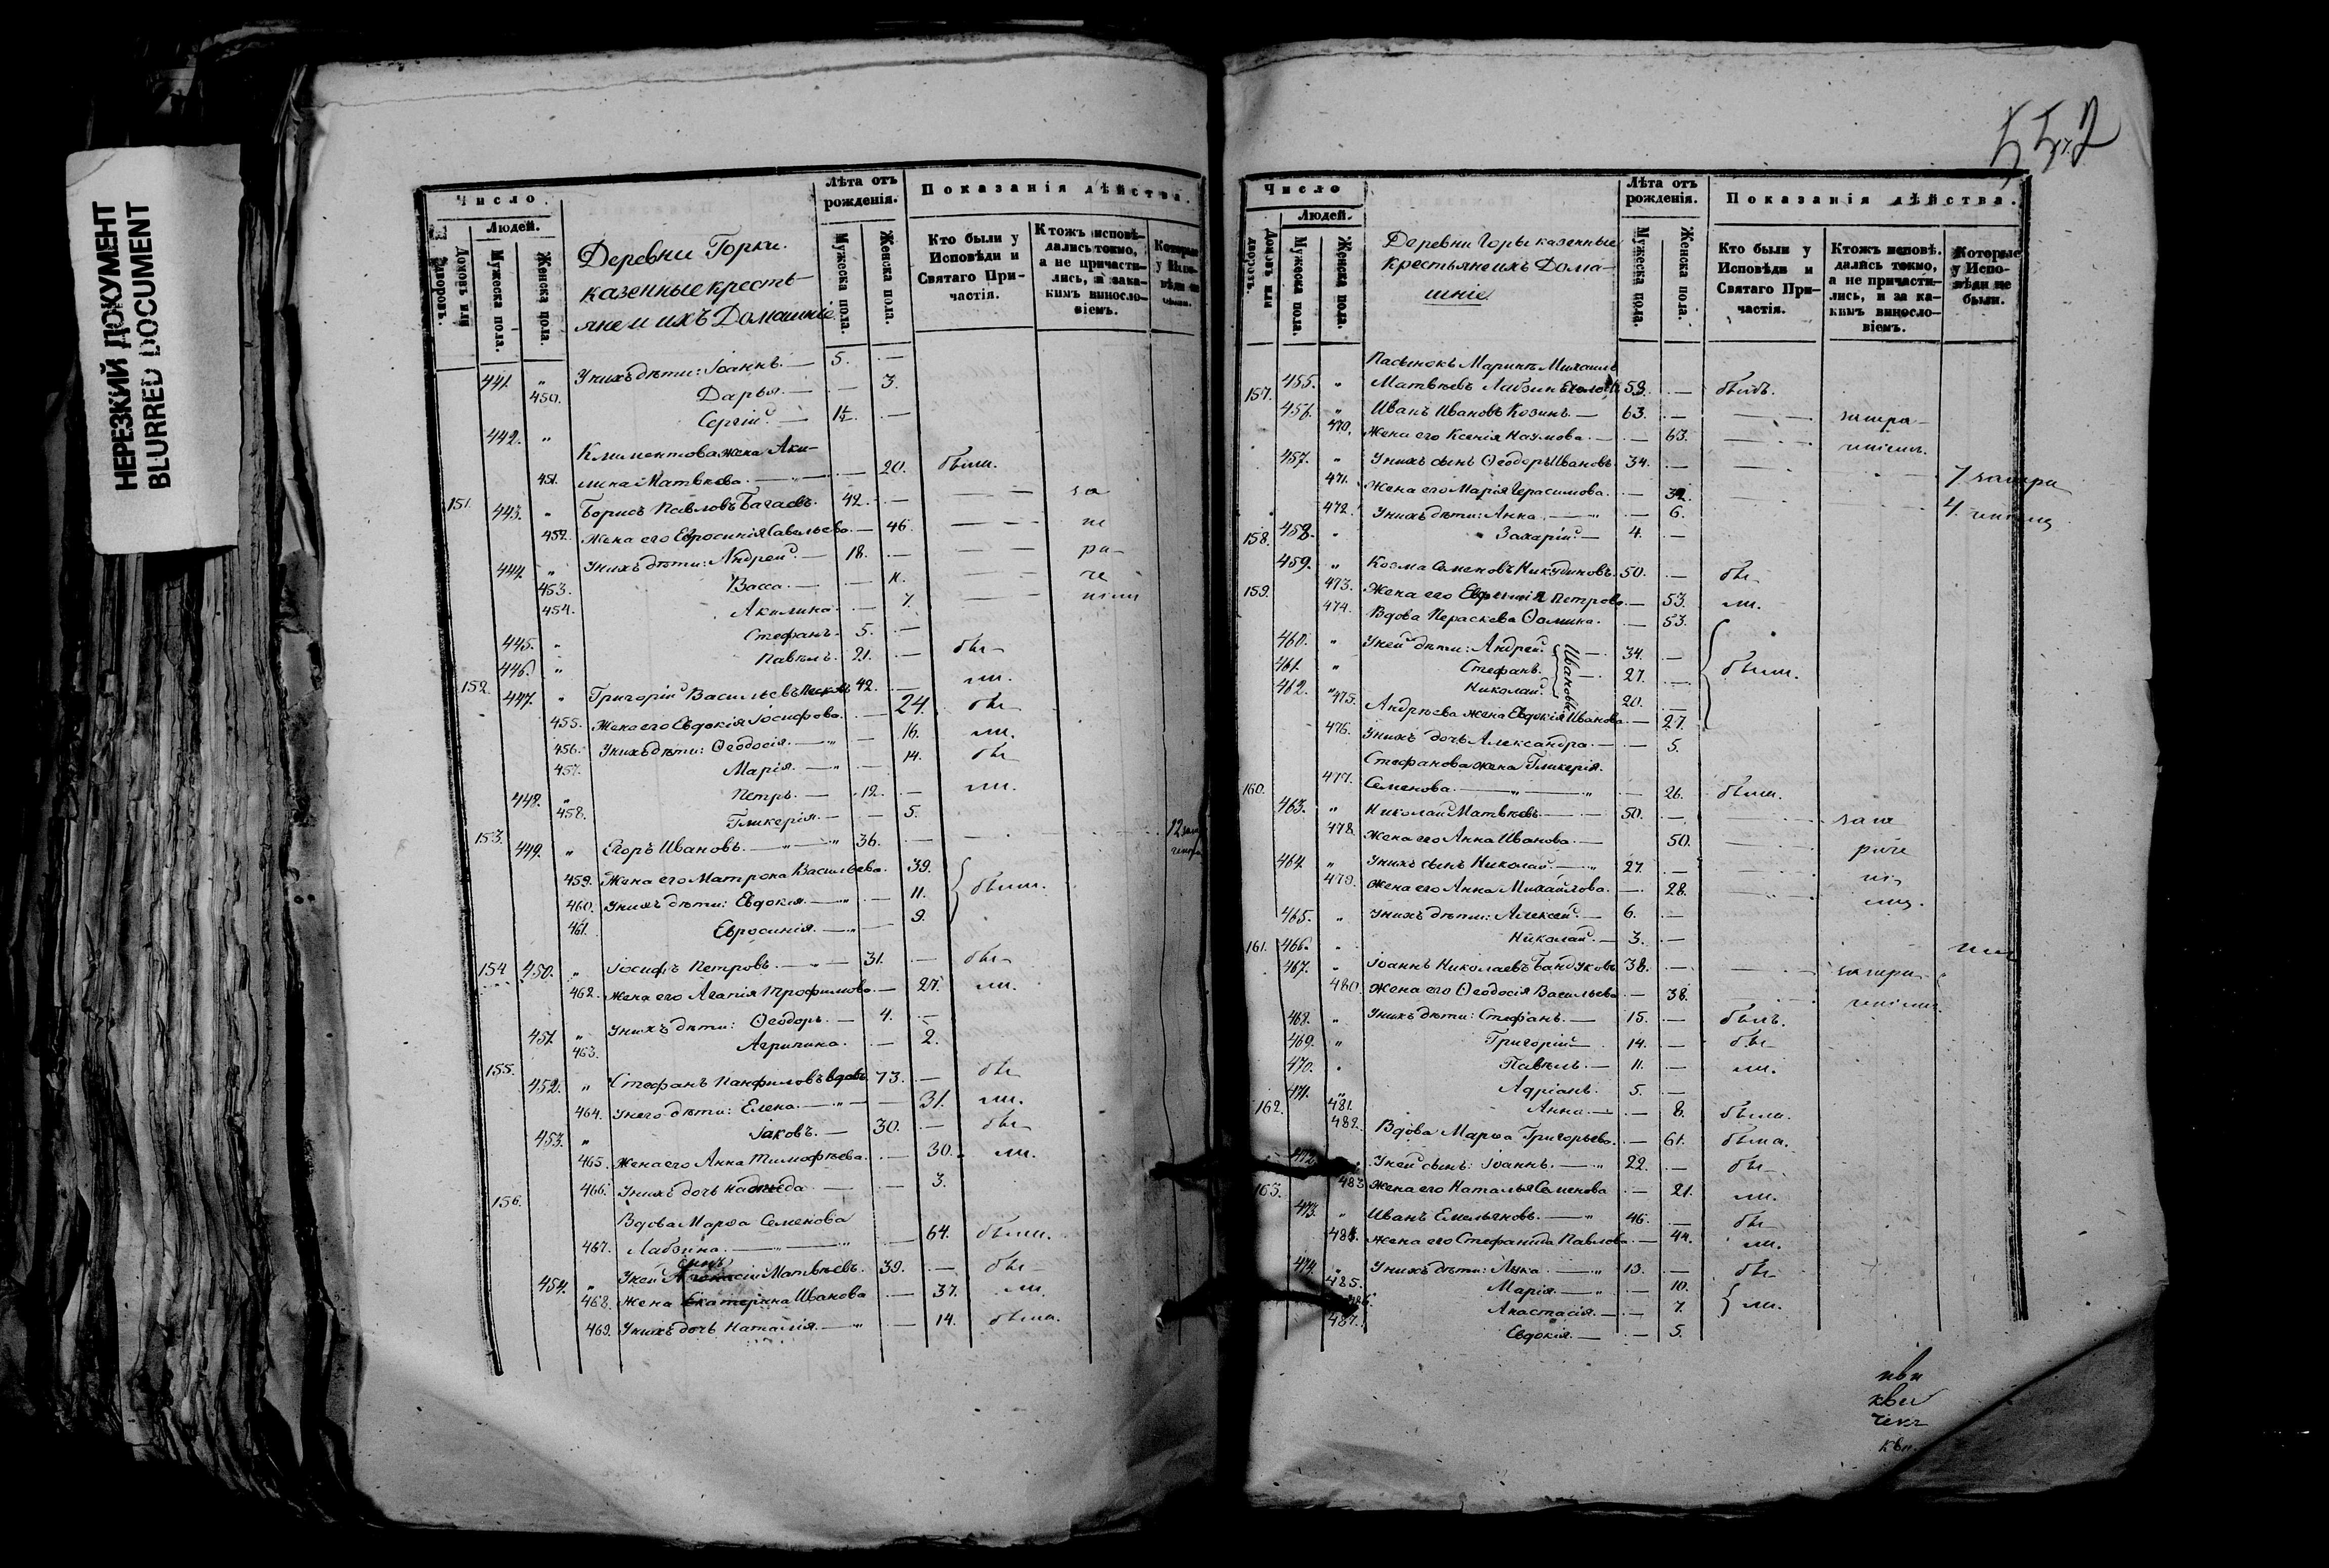 НЕРЕЗКИЙ ДОКУМЕНТ
BLURRED DOCUMENT
Число.
Людей.
Домовъ или дворовъ.
Мужеска пола.
Женска пола.
Деревни Горки.
казенные кресть-
яне и ихъ Домашние
Лѣта отъ рожденія.
Мужеска пола.
Женска пола.
Показанія дѣйства.
Кто были у Исповѣди и Святаго При-частія.
Ктожъ исповѣ-дались токмо, а не причасти-лись, и за ка-кимъ винословіемъ.
Которые у Испо-вѣди не были.
441. " У нихъ дѣти: Іоаннъ. — 5. —
450. Дарья. — — 3.
442. " Сергій. —
Климентова жена Аки-
451. лина Матвѣева. — 20. были.
151. 443. " Борисъ Павловъ Багаевъ. 42. —
452. Жена его Евросинія Савельева — 46.
444. " У нихъ дѣти: Андрей. — 18. —
453. Васса. —
454. Акилина. — 7.
445. " Стефанъ. 5. —
446. " Павелъ. 21. — бы-
152. 447. " Григорій Васильевъ 42. — ли.
455. Жена его Евдокія Іосифова. — 24. бы-
456. У нихъ дѣти: Ѳеодосія. — 16. ли.
457. Марія. — 14. бы-
448. " Петръ. — 12. — ли.
458. Гликерія. — 5.
153. 449. " Егоръ Ивановъ. — 36. —
459. Жена его Матрона Васильева. 39.
460. У нихъ дѣти: Евдокія. — 11. были.
461. Евросинія. — 9.
154 450. " Іосифъ Петровъ. — 31. — бы-
462. Жена его Агапія Трофимова. — 27. ли.
451. " У нихъ дѣти: Ѳеодоръ. — 4. —
463. Агрипина. — 2.
155. 452. " Стефанъ Панфиловъ вдовъ. 73. — бы-
464. У него дѣти: Елена. — 31. ли.
453. " Іаковъ. — 30. — бы-
465. Жена его Анна Тимофѣева. — 30. ли.
466. У нихъ дочь Надежда — 3.
156. Вдова Марѳа Семенова
467. Лабзина. — 64. были.
454. " У ней сынъ Матвѣевъ. 39. — бы-
468. Жена Екатерина Иванова — 37. ли.
469. У нихъ дочь Наталія. — 14. была.
552
Число
Людей.
Домовъ или дворовъ.
Мужеска пола.
Женска пола.
Деревни Горы казенные
крестьяне ихъ Дома-
шніе.
Лѣта отъ рожденія.
Мужеска пола.
Женска пола.
Показанія дѣйства.
Кто были у Исповѣди и Святаго При-частія.
Ктожъ исповѣ-дались токмо, а не причасти-лись, и за ка-кимъ винословіемъ.
Которые у Испо-вѣди не были.
Пасынокъ Марины Михаилъ
455. " Матвѣевъ Лабзинъ 59. — былъ.
157. 456. " Иванъ Ивановъ Козинъ. — 63. —
470. Жена его Ксенія Наумова. — 63.
457. " У нихъ сынъ Ѳеодоръ Ивановъ. 34. —
471. Жена его Марія Герасимова. — 32.
472. У нихъ дѣти: Анна. — 6.
458. " Захарій. — 4. —
158. 459. " Козма Семеновъ Никудиновъ. 50. — бы-
473. Жена его Евфимія Петрова — 53. ли.
159. 474. Вдова Пераскева Ѳомина. — 53.
460. " У ней дѣти: Андрей. 34. —
461. " Стефанъ. Ивановы 27. — были.
462. " Николай. 20. —
475. Андрѣева жена Евдокія Иванова — 27.
476. У нихъ дочь Александра. — 5.
Стефанова жена Гликерія.
477. Семенова. — 26. были.
160. 463. " Николай Матвѣевъ. — 50. —
478. Жена его Анна Иванова. — 50.
464. " У нихъ сынъ Николай. — 27. —
479. Жена его Анна Михайлова. — 28.
465. " У нихъ дѣти: Алексей. — 6. —
466. " Николай. — 3. —
161. 467. " Іоаннъ Николаевъ Бандуковъ 38. —
480. Жена его Ѳеодосія Васильева — 38.
468. " У нихъ дѣти: Стефанъ. — 15. — былъ.
469. " Григорій — 14. — бы-
470. " Павелъ. — 11. — ли.
471. " Адріанъ. 5. —
481. Анна. — 8. была.
162. 482. Вдова Марѳа Григорьева. — 61. была.
472. " У ней сынъ: Іоаннъ. — 22. — бы-
483 Жена его Наталья Семенова — 21. ли.
163. 473. " Иванъ Емельяновъ. — 46. — бы-
484. Жена его Стефанида Павлова — 44. ли.
474. " У нихъ дѣти: Лука. — 13. — бы-
485. Марія. — 10.
486. Анастасія. — 7. ли.
487. Евдокія. — 5.